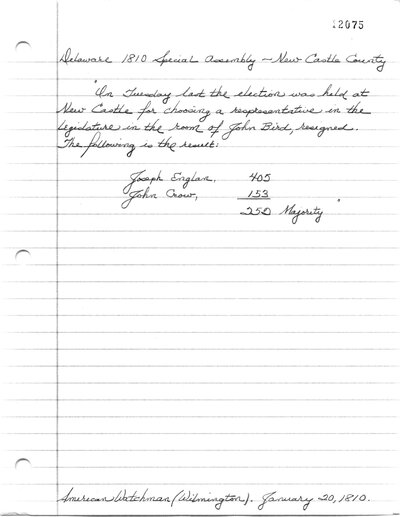 12075
Delaware 1810 Special Assembly ~ New Castle County
"On Tuesday last the election was held at
New Castle for choosing a representative in the
legislature in the room of John Bird, resigned.
The following is the result:
Joseph Englan, 405
John Crow, 153
252 Majority"
American Watchman (Wilmington). January 20, 1810.